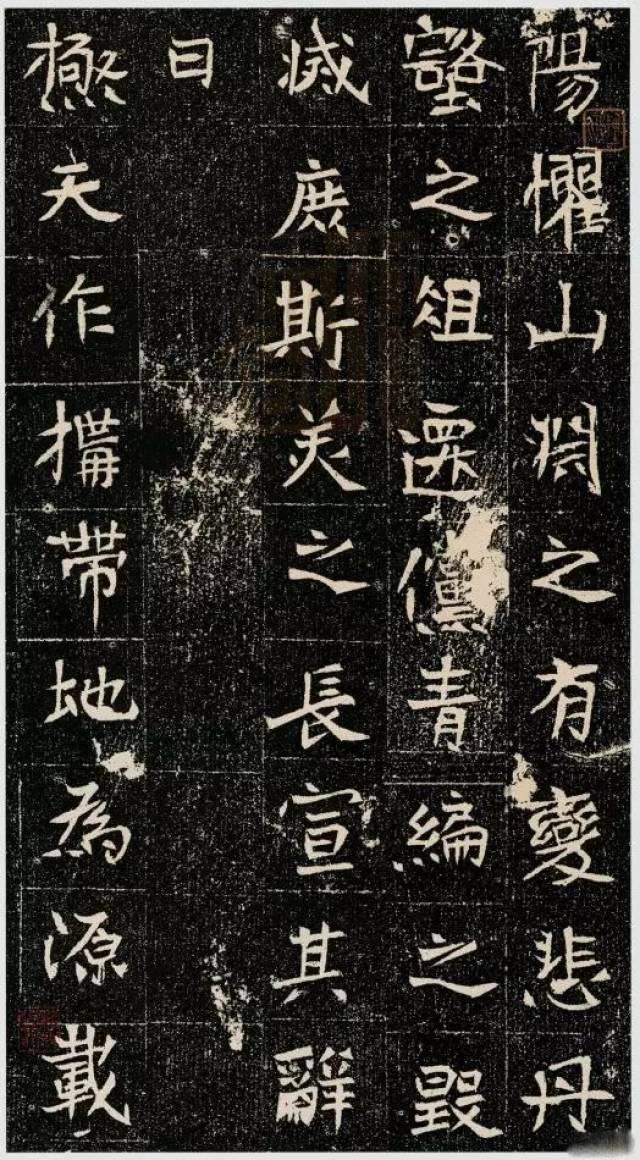 陽懼山淵之有變悲丹
壑之徂遷㒹青編之毀
滅庶斯美之長宣其辭
曰
極天作構帶地為源載